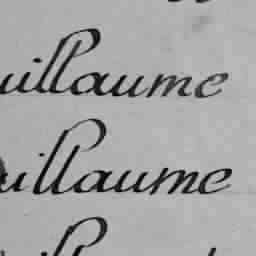 uillaume
uillaume